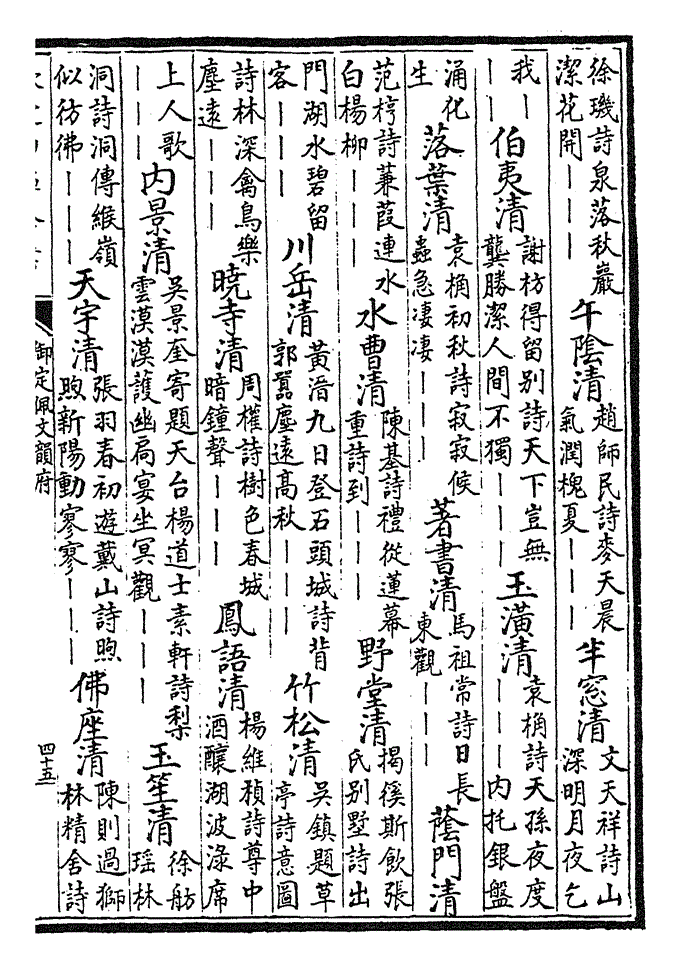 徐璣詩泉落秋巖
潔花開｜｜｜
午陰清
趙師民詩麥天晨
氣潤槐夏｜｜｜
半窓清
文天祥詩山
深明月夜乞
我｜
｜｜
伯夷清
謝枋得留别詩天下豈無
龔勝潔人間不獨｜｜｜
玉潢清
袁桷詩天孫夜度
内托銀盤
涌化
生
落葉清
袁桷初秋詩寂寂候
蟲急凄凄｜｜｜
著書清
馬祖常詩日長
東觀｜｜｜
蔭門清
范梈詩蒹葭連水
白楊柳｜｜｜
水曹清
陳基詩禮從蓮幕
重詩到｜｜｜
野堂清
揭徯斯飲張
氏别墅詩出
門湖水碧留
客｜｜｜
川岳清
黄溍九日登石頭城詩背
郭囂塵遠高秋｜｜｜
竹松清
吳鎮題草
亭詩意圖
詩林深禽鳥樂
塵遠｜｜｜
曉寺清
周權詩樹色春城
暗鐘聲｜｜｜
鳳語清
楊維楨詩尊中
酒釀湖波渌席
上人歌
｜｜｜
内景清
吳景奎寄題天台楊道士素軒詩梨
雲漠漠護幽扃宴坐冥觀｜｜｜
玉笙清
徐舫
瑶林
洞詩洞傳緱嶺
似彷彿｜｜｜
天宇清
張羽春初遊戴山詩煦
煦新陽動寥寥｜｜｜
佛座清
陳則過獅
林精舍詩
御定佩文韻府
四十五